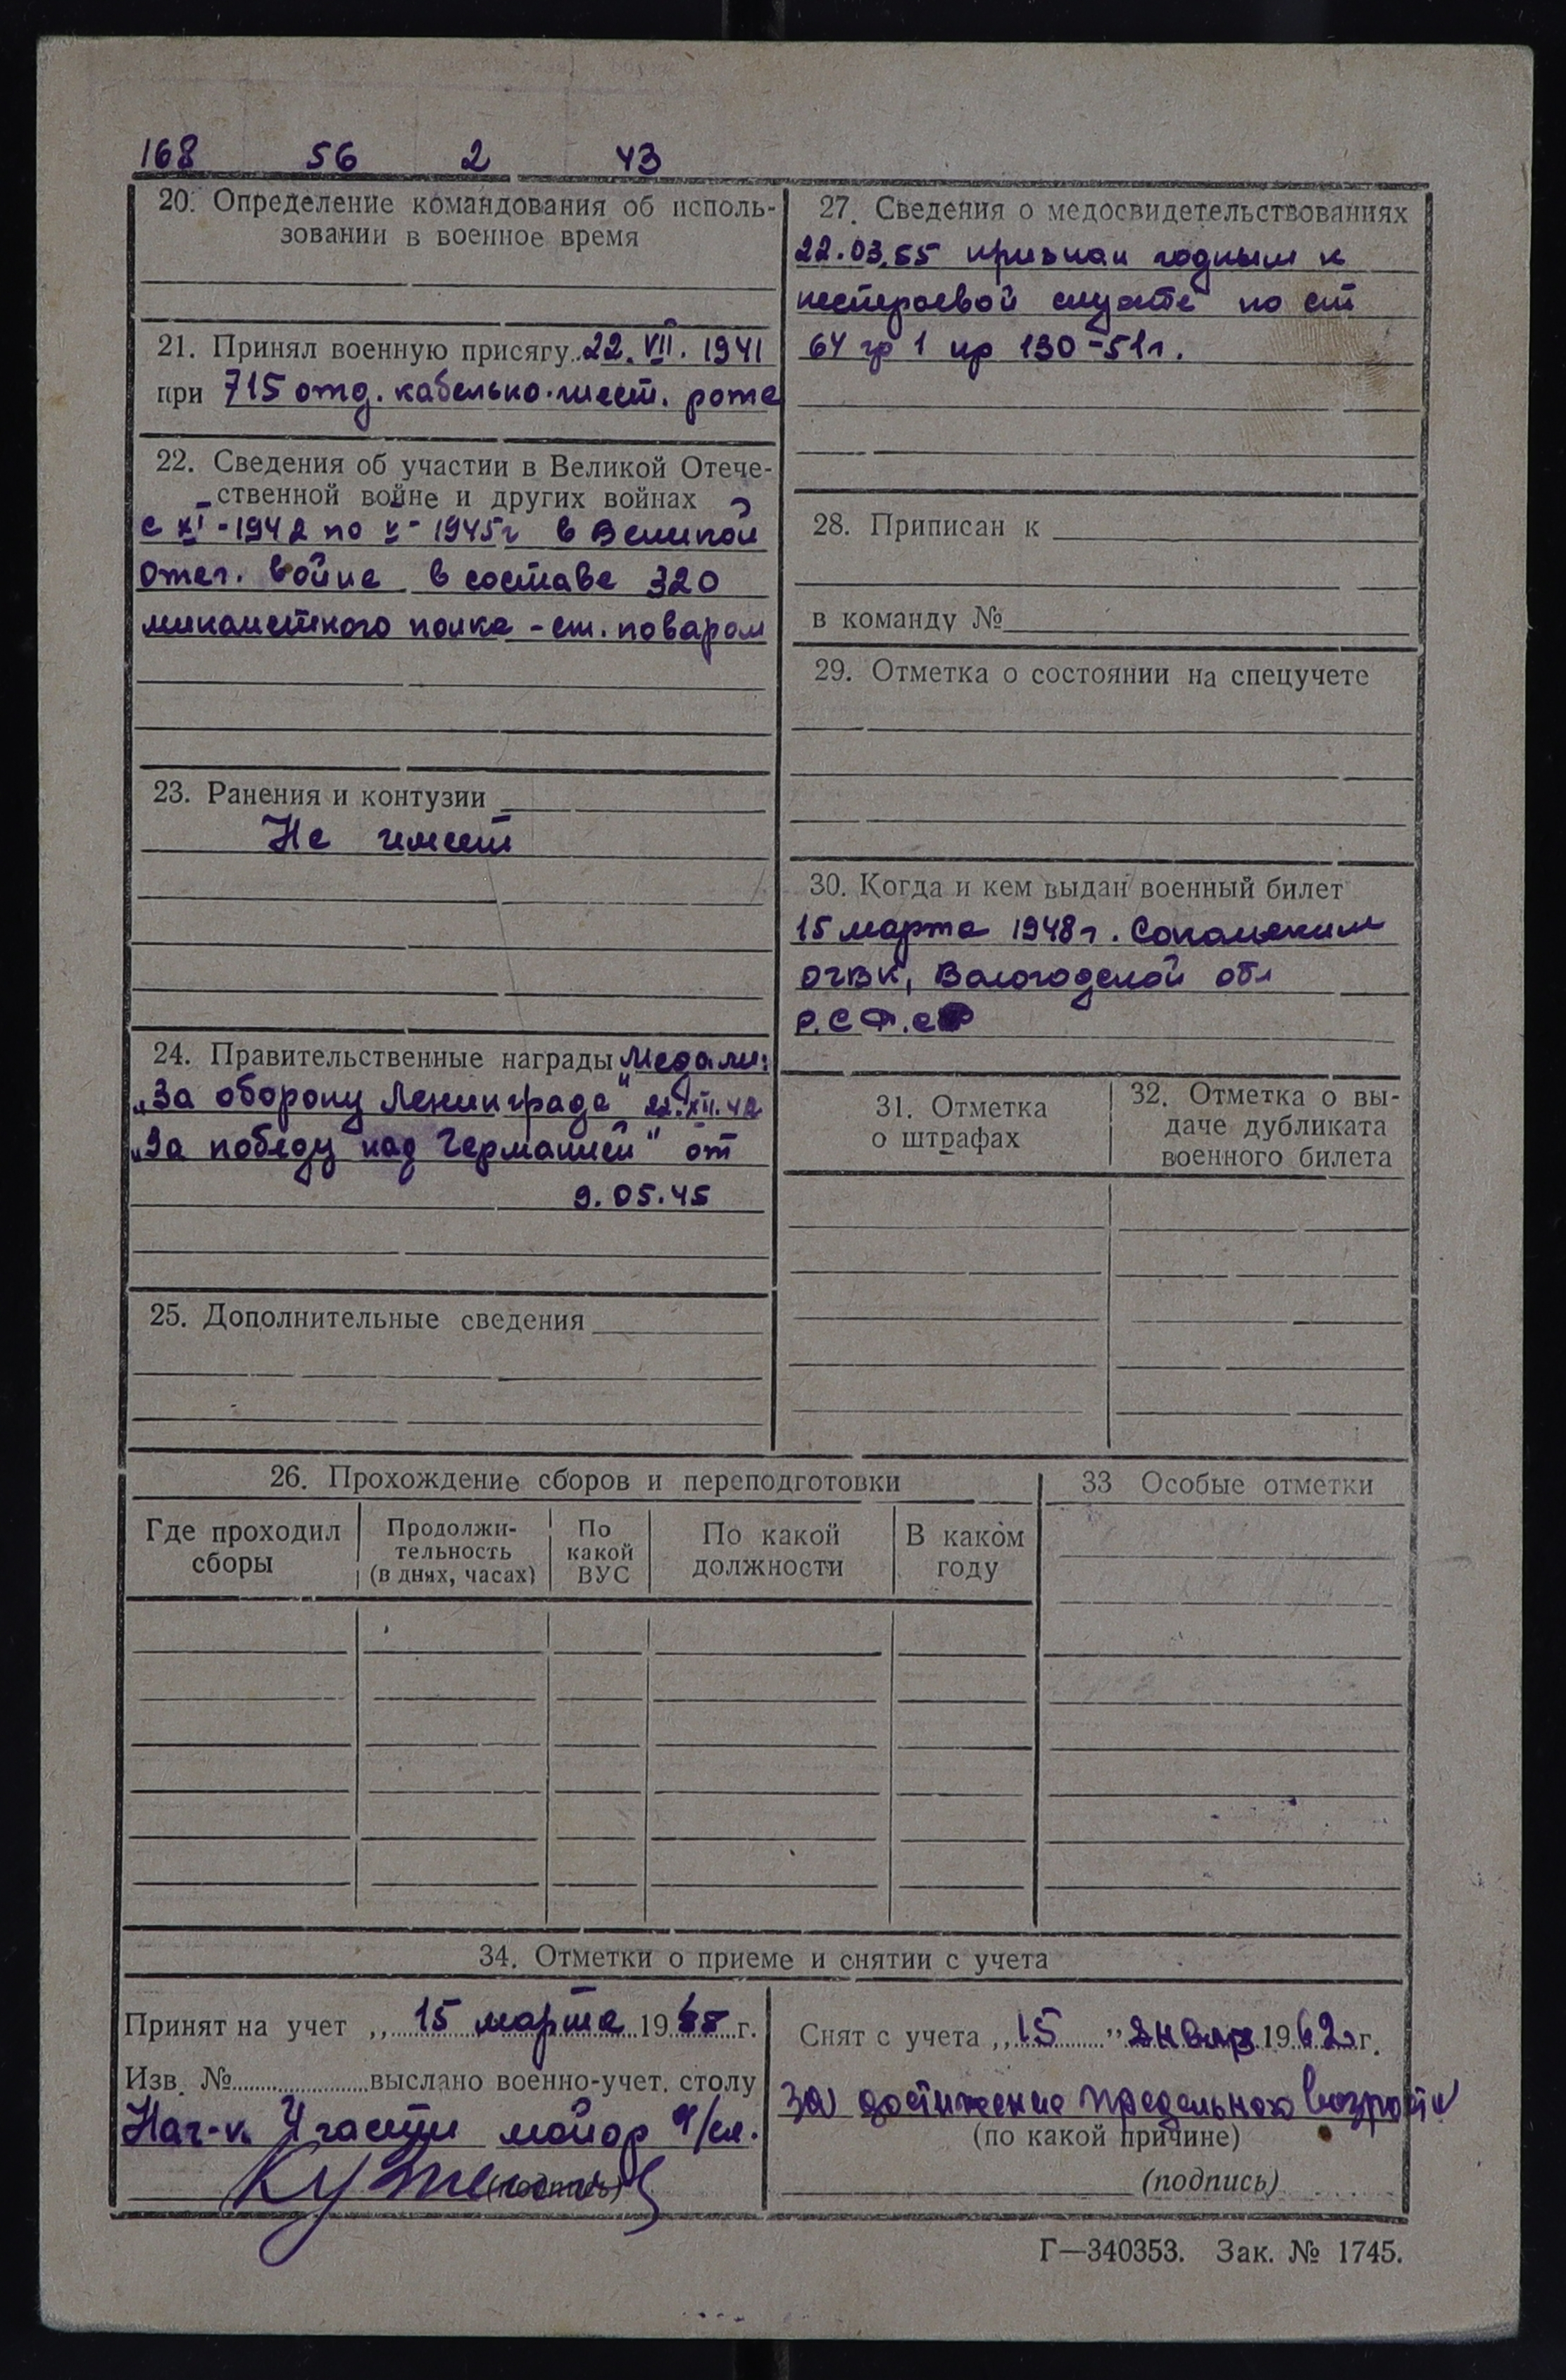 168 56 2 43
20. Определение командования об исполь-
зовании в военное время
21. Принял военную присягу 22. VII. 1941
при 715 отд. кабельно-шест. роте
22. Сведения об участии в Великой Отече-
ственной войне и других войнах
с XI-1942 по V-1945г в Великой
Отеч. войне в составе 320
минометного полка - ст. поваром
23. Ранения и контузии
Не имеет
24. Правительственные награды Медали:
„За оборону Ленинграда" 22.XII.42
„За победу над Германией" от
9.05.45
25. Дополнительные сведения
27. Сведения о медосвидетельствованиях
22.03.55 признан годным к
нестроевой службе по ст
64 гр 1 пр 130-51г.
28. Приписан к
в команду №
29. Отметка о состоянии на спецучете
30. Когда и кем выдан военный билет
15 марта 1948г. Сокольским
ОГВК, Вологодской обл
Р.С.Ф.С.Р
31. Отметка
о штрафах
32. Отметка о вы-
даче дубликата
военного билета
26. Прохождение сборов и переподготовки
Где проходил
сборы
Продолжи-
тельность
(в днях, часах)
По
какой
ВУС
По какой
должности
В каком
году
33 Особые отметки
34. Отметки о приеме и снятии с учета
Принят на учет „ 15 марта 1955 г.
Изв. № выслано военно-учет. столу
Нач-к 4 части майор а/сл.
(подпись)
Снят с учета „15" января 1962 г.
за достижение предельного возраста
(по какой причине)
(подпись)
Г—340353. Зак. № 1745.